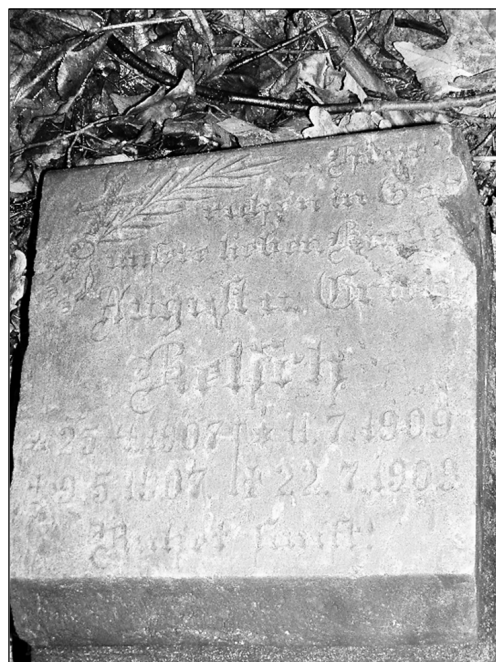 Hier
ruhen in Gott
unsere lieben Kinder
August u.
* 25.4.1907 * 11.7.1909
† 9.5.1907. † 22.7.1909
Ruhet sanft!